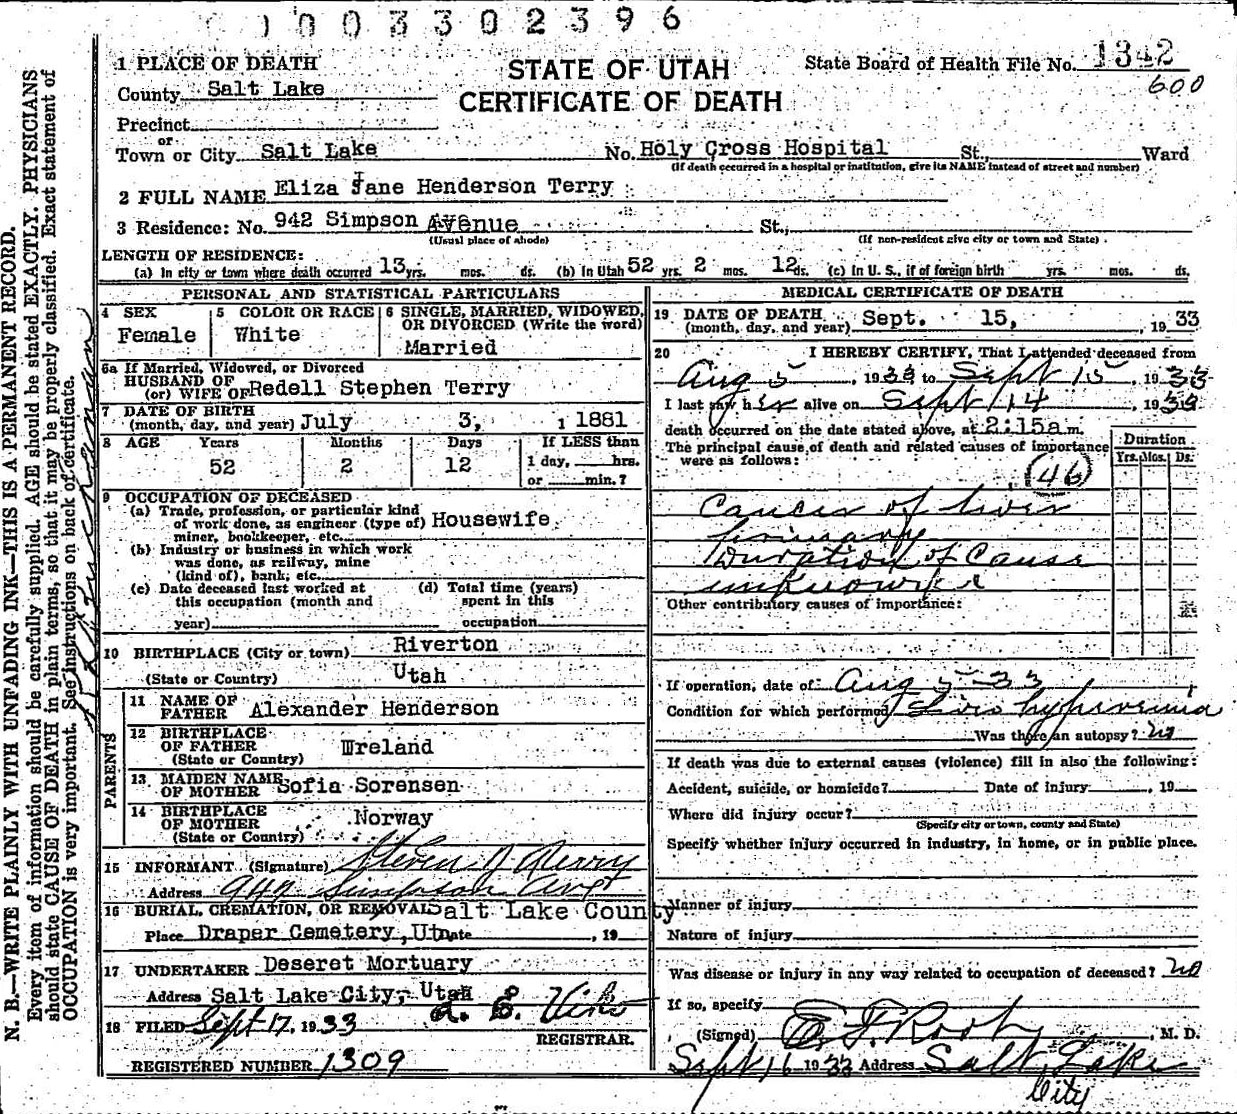 1003302396
STATE OF UTAH
CERTIFICATE OF DEATH
State Board of Health File No. 1342
600
1 PLACE OF DEATH
County Salt Lake
Precinct
or
Town or City Salt Lake No. Holy Cross Hospital St., Ward
(If death occurred in a hospital or institution, give its NAME instead of street and number)
2 FULL NAME Eliza Jane Henderson Terry
3 Residence: No. 942 Simpson Avenue St.,
(Usual place of abode) (If non-resident give city or town and State)
LENGTH OF RESIDENCE:
(a) In city or town where death occurred 13 yrs. mos. ds. (b) In Utah 52 yrs. 2 mos. 12 ds. (c) In U. S., if of foreign birth yrs. mos. ds.
PERSONAL AND STATISTICAL PARTICULARS
4 SEX
Female
5 COLOR OR RACE
White
6 SINGLE, MARRIED, WIDOWED,
OR DIVORCED (Write the word)
Married
6a If Married, Widowed, or Divorced
HUSBAND OF
(or) WIFE OF Redell Stephen Terry
7 DATE OF BIRTH
(month, day, and year) July 3, 1 1881
8 AGE Years Months Days If LESS than
52 2 12 1 day, hrs.
or min.?
9 OCCUPATION OF DECEASED
(a) Trade, profession, or particular kind
of work done, as engineer (type of) Housewife
miner, bookkeeper, etc.
(b) Industry or business in which work
was done, as railway, mine
(kind of), bank, etc.
(c) Date deceased last worked at
this occupation (month and
year)
(d) Total time (years)
spent in this
occupation
10 BIRTHPLACE (City or town) Riverton
(State or Country) Utah
PARENTS
11 NAME OF
FATHER Alexander Henderson
12 BIRTHPLACE
OF FATHER Ireland
(State or Country)
13 MAIDEN NAME
OF MOTHER Sofia Sorensen
14 BIRTHPLACE
OF MOTHER Norway
(State or Country)
15 INFORMANT (Signature) Steven Terry
Address 942 Simpson Ave
16 BURIAL, CREMATION, OR REMOVAL Salt Lake County
Place Draper Cemetery, Ut Date , 19
17 UNDERTAKER Deseret Mortuary
Address Salt Lake City, Utah
18 FILED Sept 17, 1933
REGISTRAR.
REGISTERED NUMBER 1309
MEDICAL CERTIFICATE OF DEATH
19 DATE OF DEATH
(month, day, and year) Sept. 15, , 1933
20 I HEREBY CERTIFY, That I attended deceased from
Aug 5 , 1933 to Sept 15 , 1933
I last saw her alive on Sept 14 , 1933
death occurred on the date stated above, at 2:15a m.
The principal cause of death and related causes of importance
were as follows:
Duration
Yrs. Mos. Ds.
46
Cancer of liver
primary
Duration of Cause
unknown
Other contributory causes of importance:
If operation, date of Aug 5-33
Condition for which performed
Was there an autopsy? no
If death was due to external causes (violence) fill in also the following:
Accident, suicide, or homicide? Date of injury , 19
Where did injury occur?
(Specify city or town, county and State)
Specify whether injury occurred in industry, in home, or in public place.
Manner of injury
Nature of injury
Was disease or injury in any way related to occupation of deceased? no
If so, specify
(Signed) , M. D.
Sept 16 1933 Address Salt Lake
City
N. B.—WRITE PLAINLY WITH UNFADING INK—THIS IS A PERMANENT RECORD.
Every item of information should be carefully supplied. AGE should be stated EXACTLY. PHYSICIANS
should state CAUSE OF DEATH in plain terms, so that it may be properly classified. Exact statement of
OCCUPATION is very important. See instructions on back of certificate.